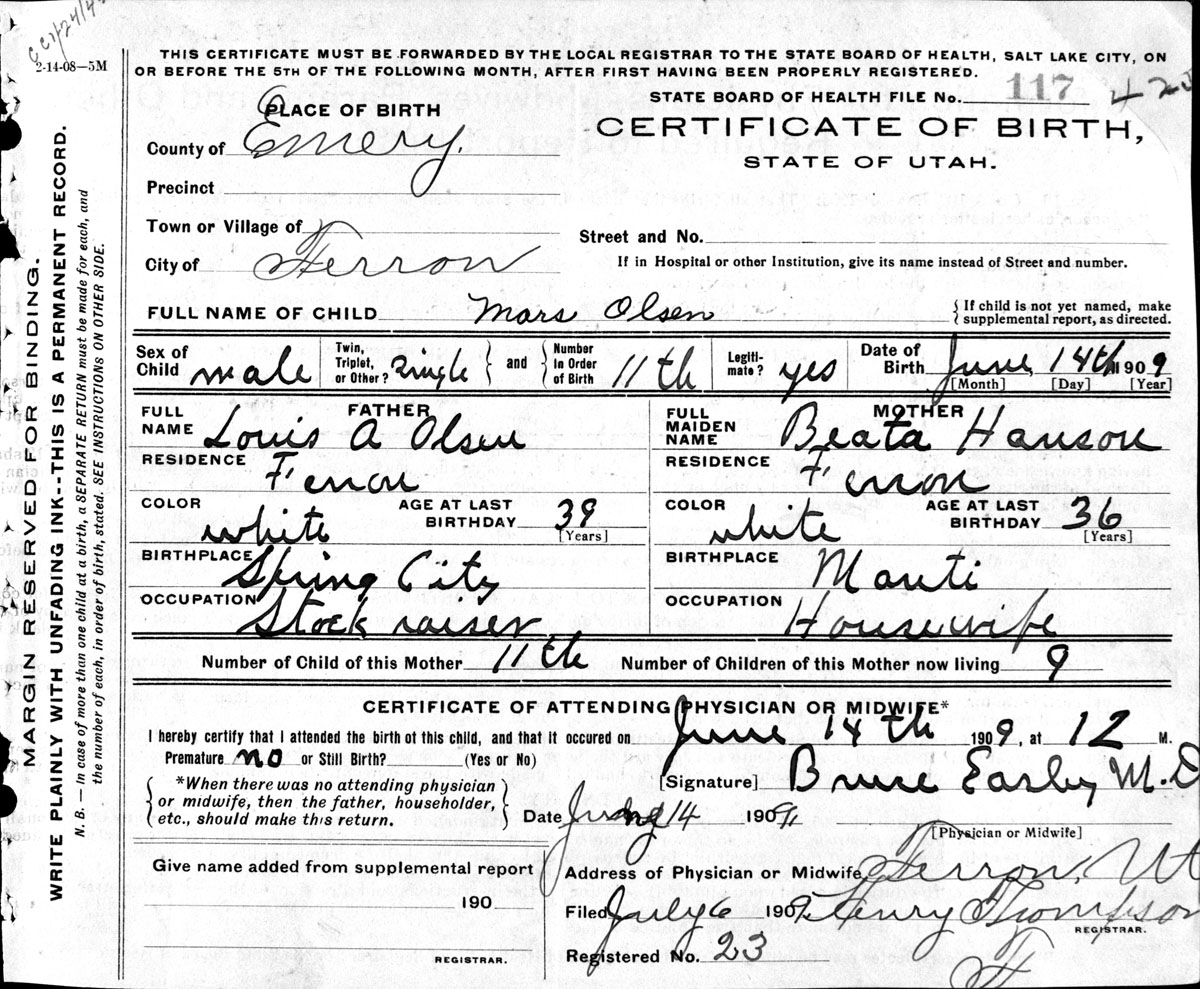 2-14-08—5M
THIS CERTIFICATE MUST BE FORWARDED BY THE LOCAL REGISTRAR TO THE STATE BOARD OF HEALTH, SALT LAKE CITY, ON
OR BEFORE THE 5TH OF THE FOLLOWING MONTH, AFTER FIRST HAVING BEEN PROPERLY REGISTERED.
STATE BOARD OF HEALTH FILE No. 117
CERTIFICATE OF BIRTH,
STATE OF UTAH.
PLACE OF BIRTH
County of Emery.
Precinct
Town or Village of
Street and No.
City of Ferron
If in Hospital or other Institution, give its name instead of Street and number.
FULL NAME OF CHILD Mars Olsen { If child is not yet named, make
supplemental report, as directed.
Sex of Child male
Twin, Triplet, or Other? single } and { Number In Order of Birth 11th
Legiti-mate? yes
Date of Birth June 14th 1909
[Month] [Day] [Year]
FATHER
FULL NAME Louis A Olsen
RESIDENCE Ferron
COLOR white AGE AT LAST BIRTHDAY 39
[Years]
BIRTHPLACE Spring City
OCCUPATION Stock raiser
MOTHER
FULL MAIDEN NAME Beata Hanson
RESIDENCE Ferron
COLOR white AGE AT LAST BIRTHDAY 36
[Years]
BIRTHPLACE Manti
OCCUPATION Housewife
Number of Child of this Mother 11th Number of Children of this Mother now living 9
CERTIFICATE OF ATTENDING PHYSICIAN OR MIDWIFE*
I hereby certify that I attended the birth of this child, and that it occured on June 14th 1909, at 12 M.
Premature no or Still Birth? (Yes or No)
[Signature] Bruce Easley M.D
{ *When there was no attending physician
or midwife, then the father, householder,
etc., should make this return. }
Date 14 1909
[Physician or Midwife]
Give name added from supplemental report
190
REGISTRAR.
Address of Physician or Midwife Ferron, Ut
Filed July 6 1909. Henry Thompson
REGISTRAR.
Registered No. 23
MARGIN RESERVED FOR BINDING.
WRITE PLAINLY WITH UNFADING INK--THIS IS A PERMANENT RECORD.
N. B. — In case of more than one child at a birth, a SEPARATE RETURN must be made for each, and
the number of each, in order of birth, stated. SEE INSTRUCTIONS ON OTHER SIDE.